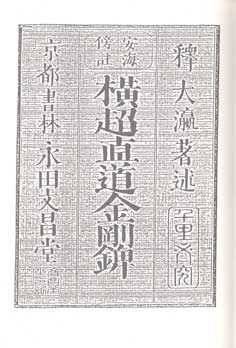 釋大瀛著述
安海
傍註
横超直道金剛錍
京都書林永田文昌堂